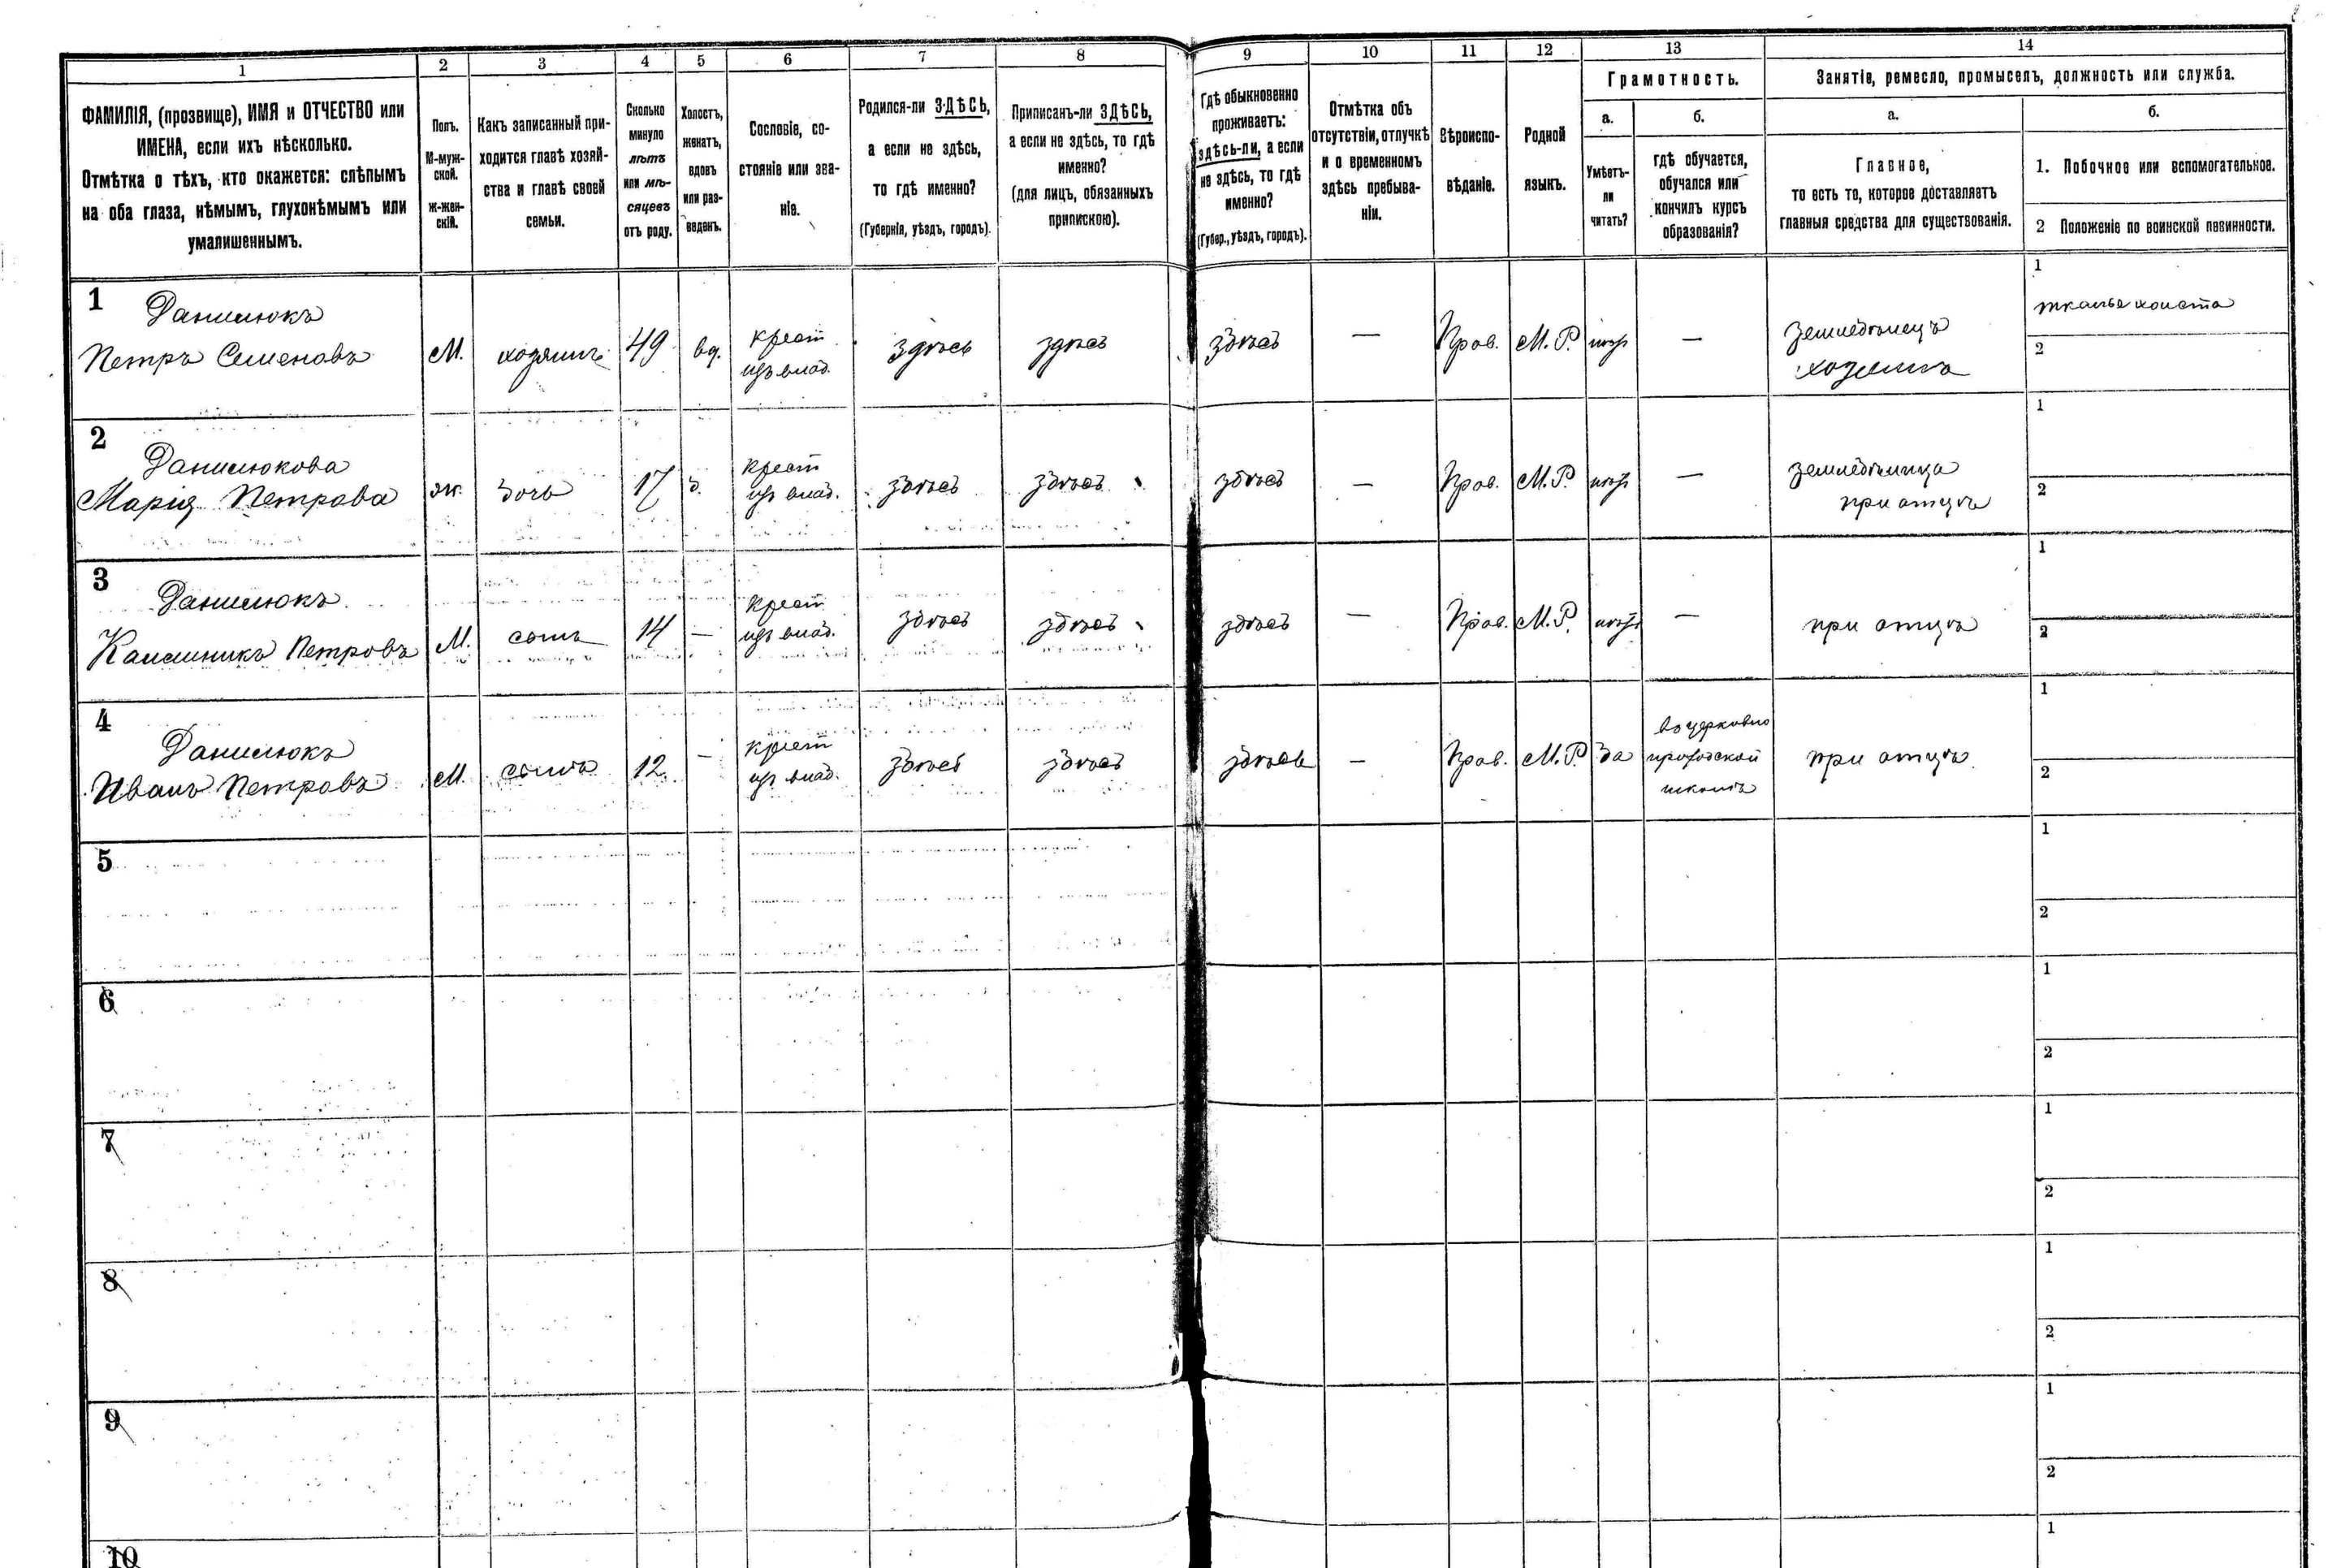 1 2 3 4 5 6 7 8 9 10 11 12 13 14
ФАМИЛІЯ, (прозвище), ИМЯ и ОТЧЕСТВО или
ИМЕНА, если ихъ нѣсколько.
Отмѣтка о тѣхъ, кто окажется: слѣпымъ
на оба глаза, нѣмымъ, глухонѣмымъ или
умалишеннымъ.
Полъ.
М-муж-
ской.
Ж-жен-
скій.
Какъ записанный при-
ходится главѣ хозяй-
ства и главѣ своей
семьи.
Сколько
минуло
лѣтъ
или мѣ-
сяцевъ
отъ роду.
Холостъ,
женатъ,
вдовъ
или раз-
веденъ.
Сословіе, со-
стояніе или зва-
ніе.
Родился-ли ЗДѢСЬ,
а если не здѣсь,
то гдѣ именно?
(Губернія, уѣздъ, городъ).
Приписанъ-ли ЗДѢСЬ,
а если не здѣсь, то гдѣ
именно?
(для лицъ, обязанныхъ
припискою).
Гдѣ обыкновенно
проживаетъ:
здѣсь-ли, а если
не здѣсь, то гдѣ
именно?
(Губер., уѣздъ, городъ).
Отмѣтка объ
отсутствіи, отлучкѣ
и о временномъ
здѣсь пребыва-
ніи.
Вѣроиспо-
вѣданіе.
Родной
языкъ.
Грамотность.
а.
Умѣетъ-
ли
читать?
б.
гдѣ обучается,
обучался или
кончилъ курсъ
образованія?
Занятіе, ремесло, промыселъ, должность или служба.
а.
Главное,
то есть то, которое доставляетъ
главныя средства для существованія.
б.
1. Побочное или вспомогательное.
2 Положеніе по воинской повинности.
1 Данилюкъ
Петръ Семеновъ М. хозяинъ 49 вд. крест
изъ влад. здѣсь здѣсь здѣсь — Прав. М. Р. — земледѣлецъ
хозяинъ
1 тканье холста
2
2 Данилюкова
Марія Петрова ж. дочь 17 д. крест
изъ влад. здѣсь здѣсь здѣсь — Прав. М. Р. — земледѣлица
при отцѣ
1
2
3 Данилюкъ
Калинникъ Петровъ М. сынъ 14 — крест
изъ влад. здѣсь здѣсь здѣсь — Прав. М. Р. — при отцѣ
1
2
4 Данилюкъ
Иванъ Петровъ М. сынъ 12 — крест
изъ влад. здѣсь здѣсь здѣсь — Прав. М. Р. да въ церковно
приходской
школѣ
при отцѣ
1
2
5
1
2
6
1
2
7
1
2
8
1
2
9
1
2
10
1